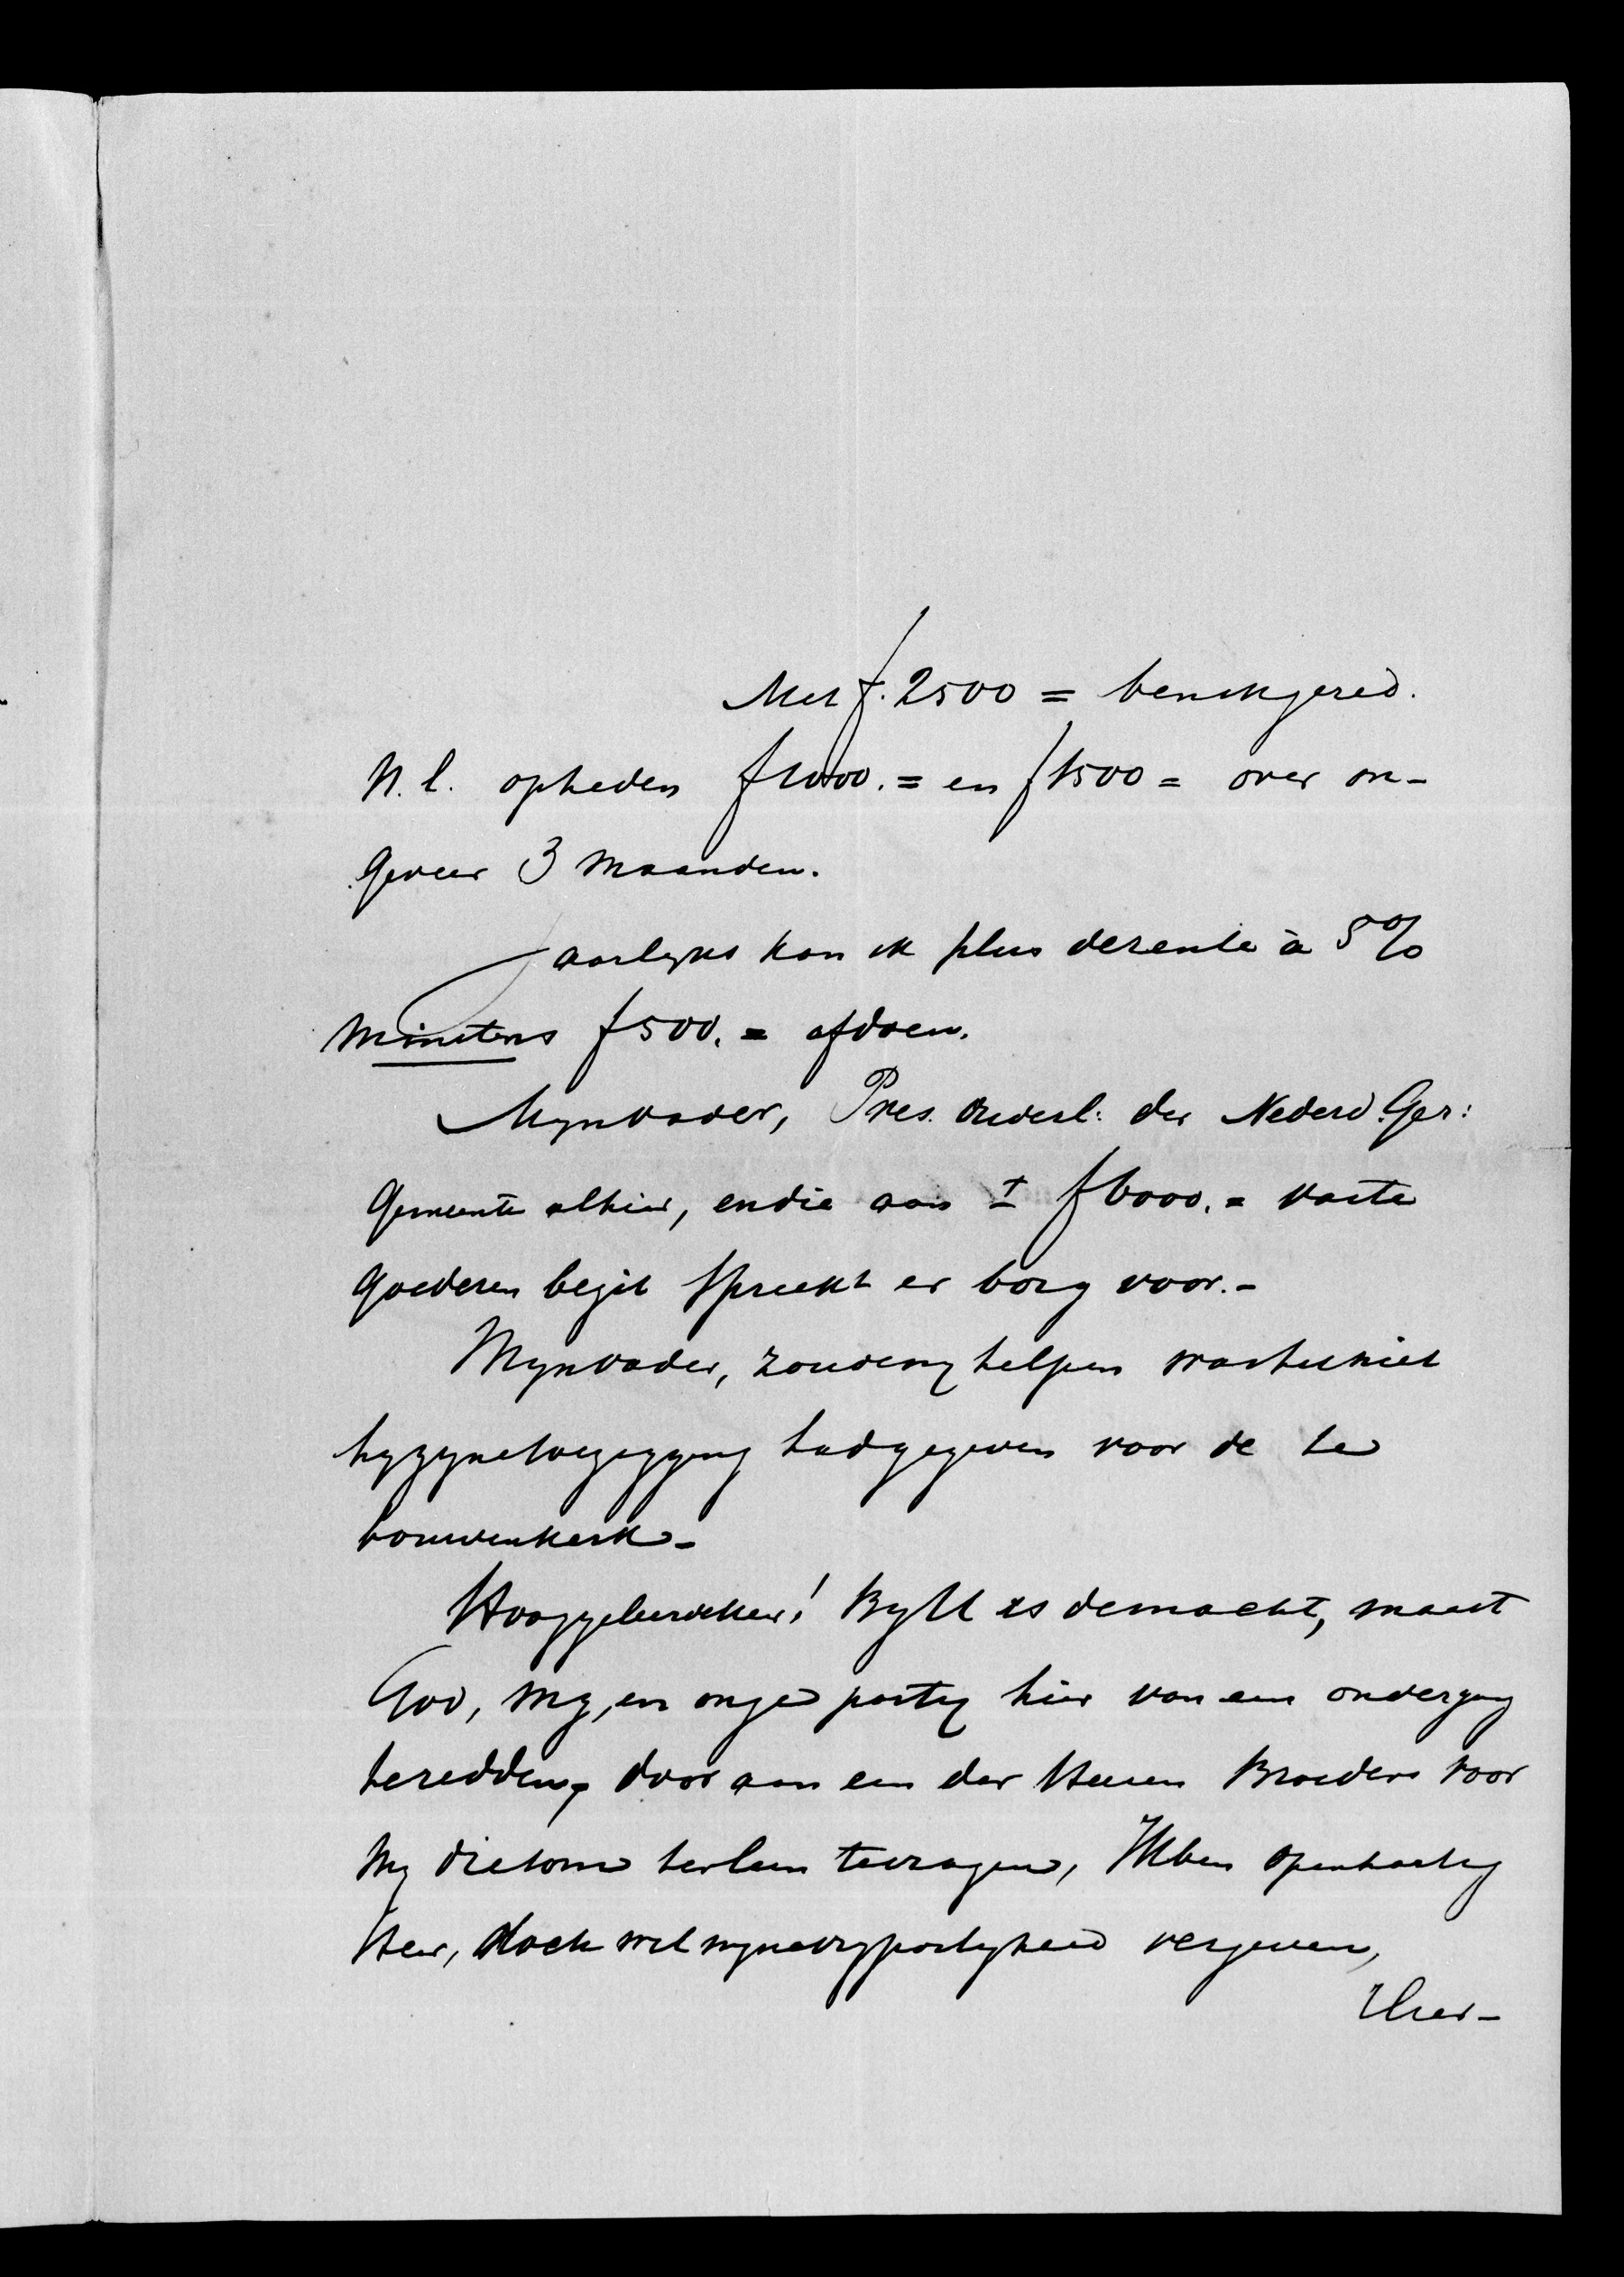 Met f. 2500 = ben ik gered.
N.l. op heden f 1000. = en f 1500 = over on-
geveer 3 maanden.
Jaarlyks kan ik plus de rente à 5%
minstens f 500. = afdoen.
Mijn vader, Pres. Ouderl: der Nederd. Ger:
Gemeente alhier, en die aan ± f 6000. = vaste
goederen bezit spreekt er borg voor. -
Mijn vader, zoude my helpen was het niet
hy zyne toezegging had gegeven voor de te
bouwen kerk -
Hooggeleerde Heer! By U is de macht, naast
God, my, en onze party hier van een ondergang
te redden, door aan een der Heeren Broeders voor
my die som ter leen te vragen, Ik ben openhartig
Heer, doch wil myne vrypostigheid vergeven,